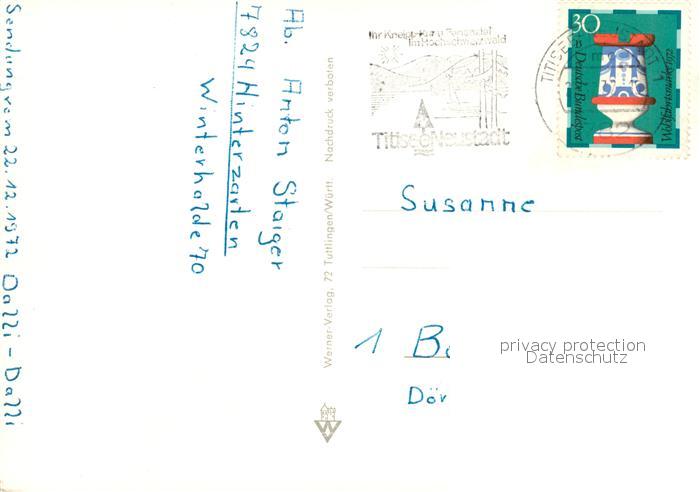 Sendung vom 22.12.1972 Dalli-Dalli
Ab. Anton Staiger
7824 Hinterzarten
Winterhalde 70
Werner-Verlag, 72 Tuttlingen/Württ. Nachdruck verboten
W
Im Hochschwarzwald
Titisee Neustadt
TITISEE
30
Deutsche Bundespost
Wohlfahrtsmarke 1972
Susanne
1 B.
Dör
privacy protection
Datenschutz